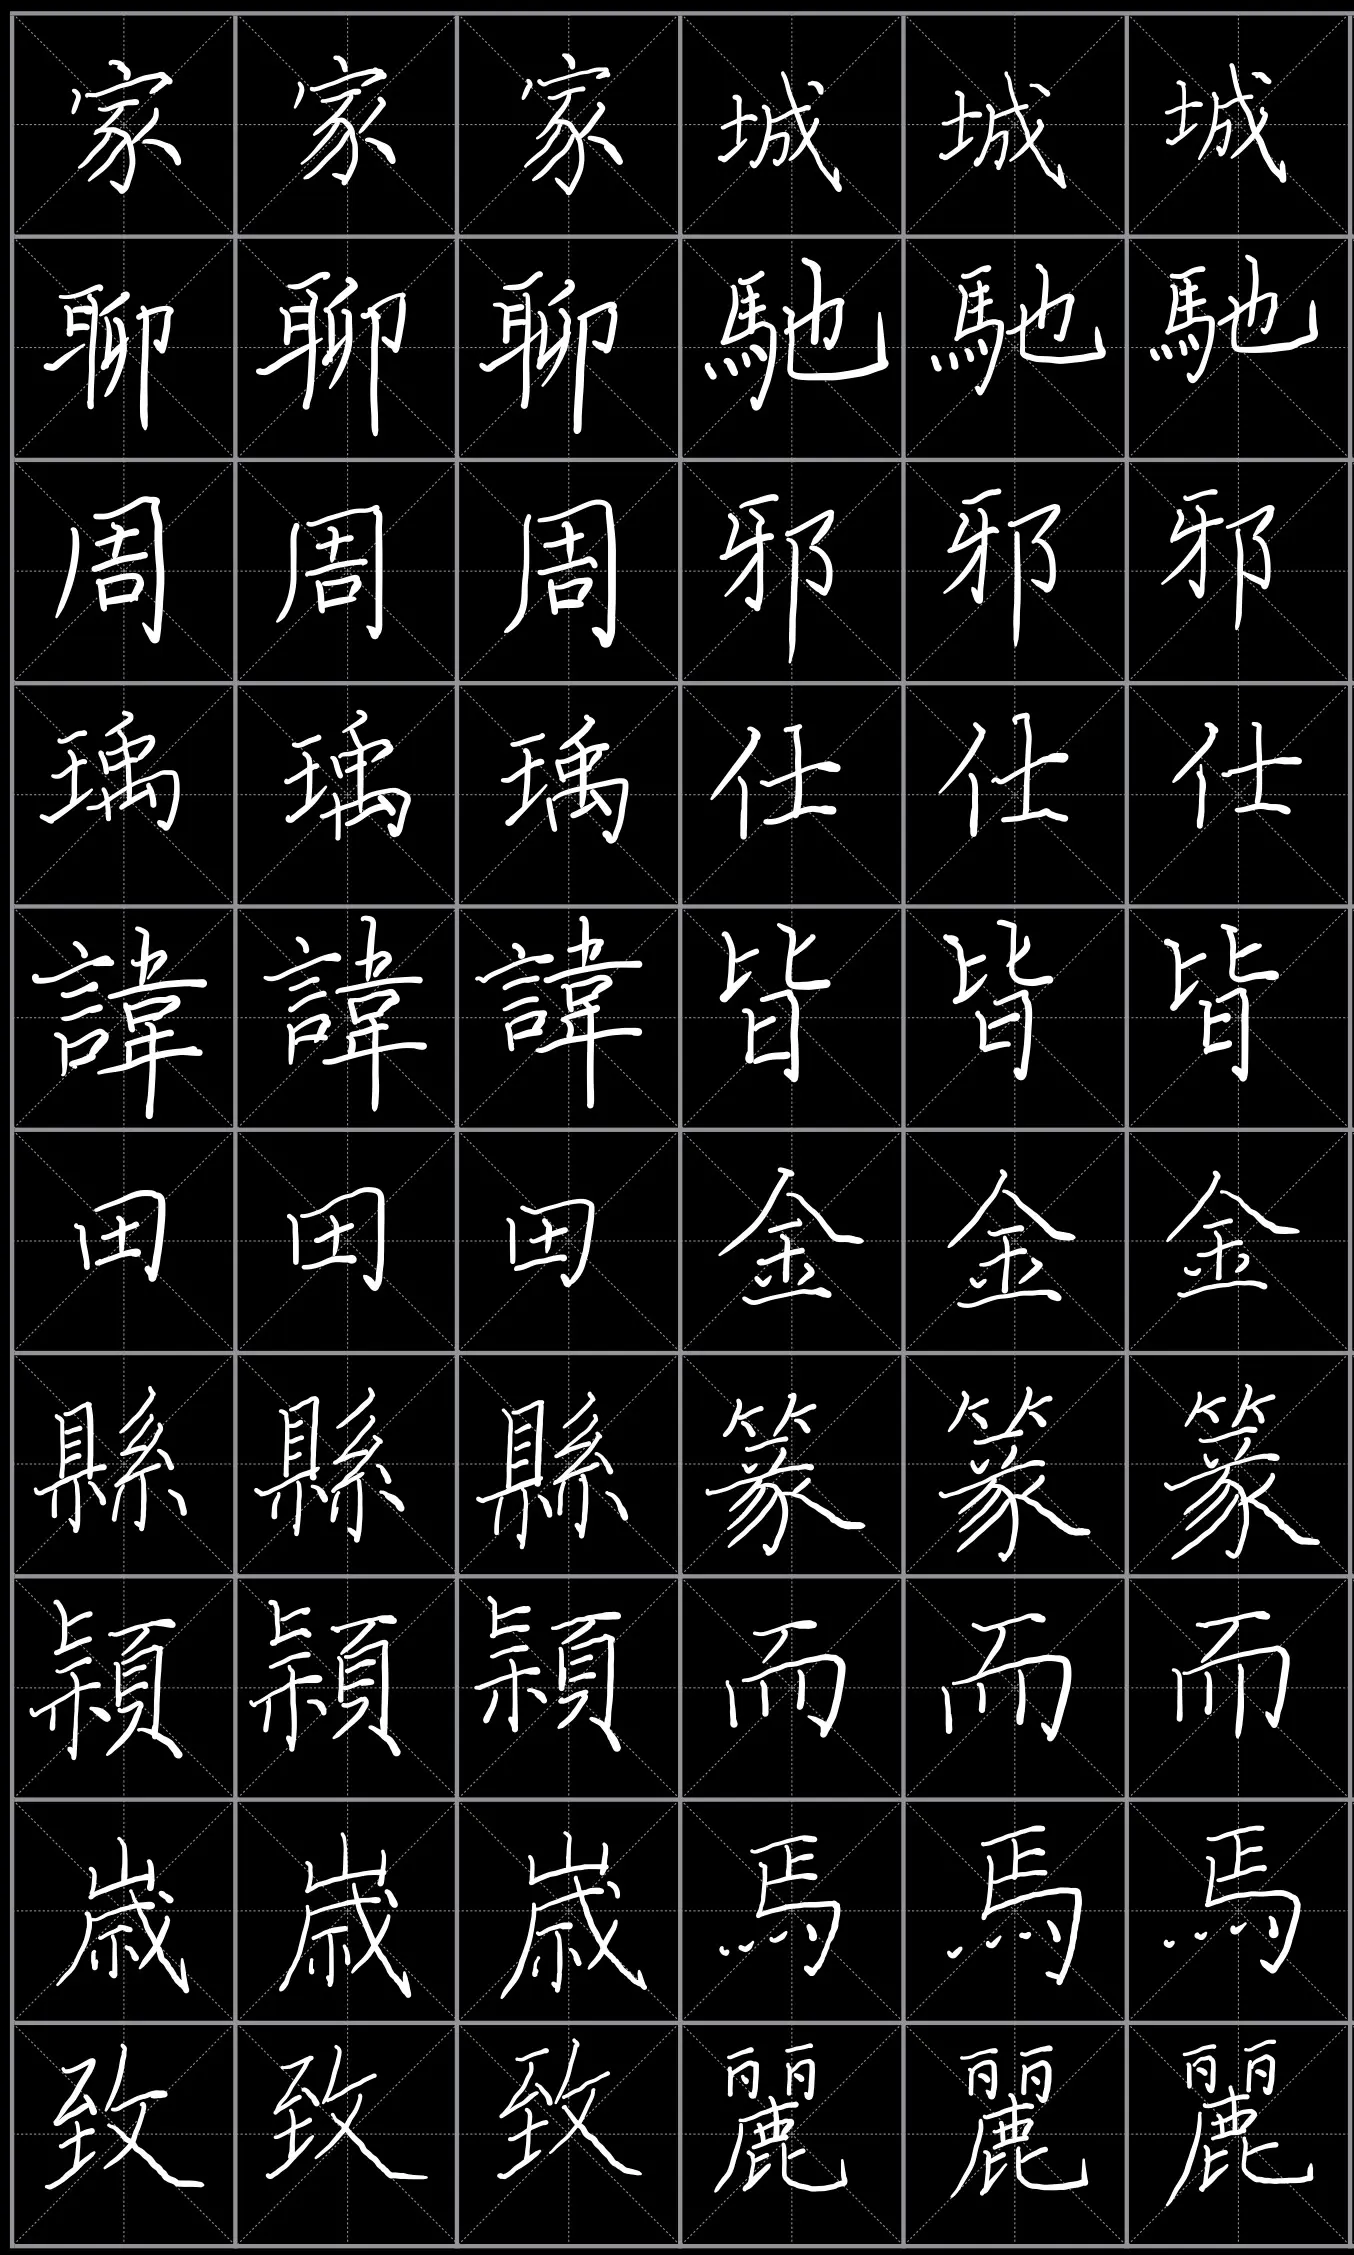 家家家城城城
聊聊聊馳馳馳
周周周邪邪邪
瑀瑀瑀仕仕仕
諱諱諱皆皆皆
田田田金金金
縣縣縣篆篆篆
潁潁潁而而而
歳歳歳馬馬馬
致致致麗麗麗